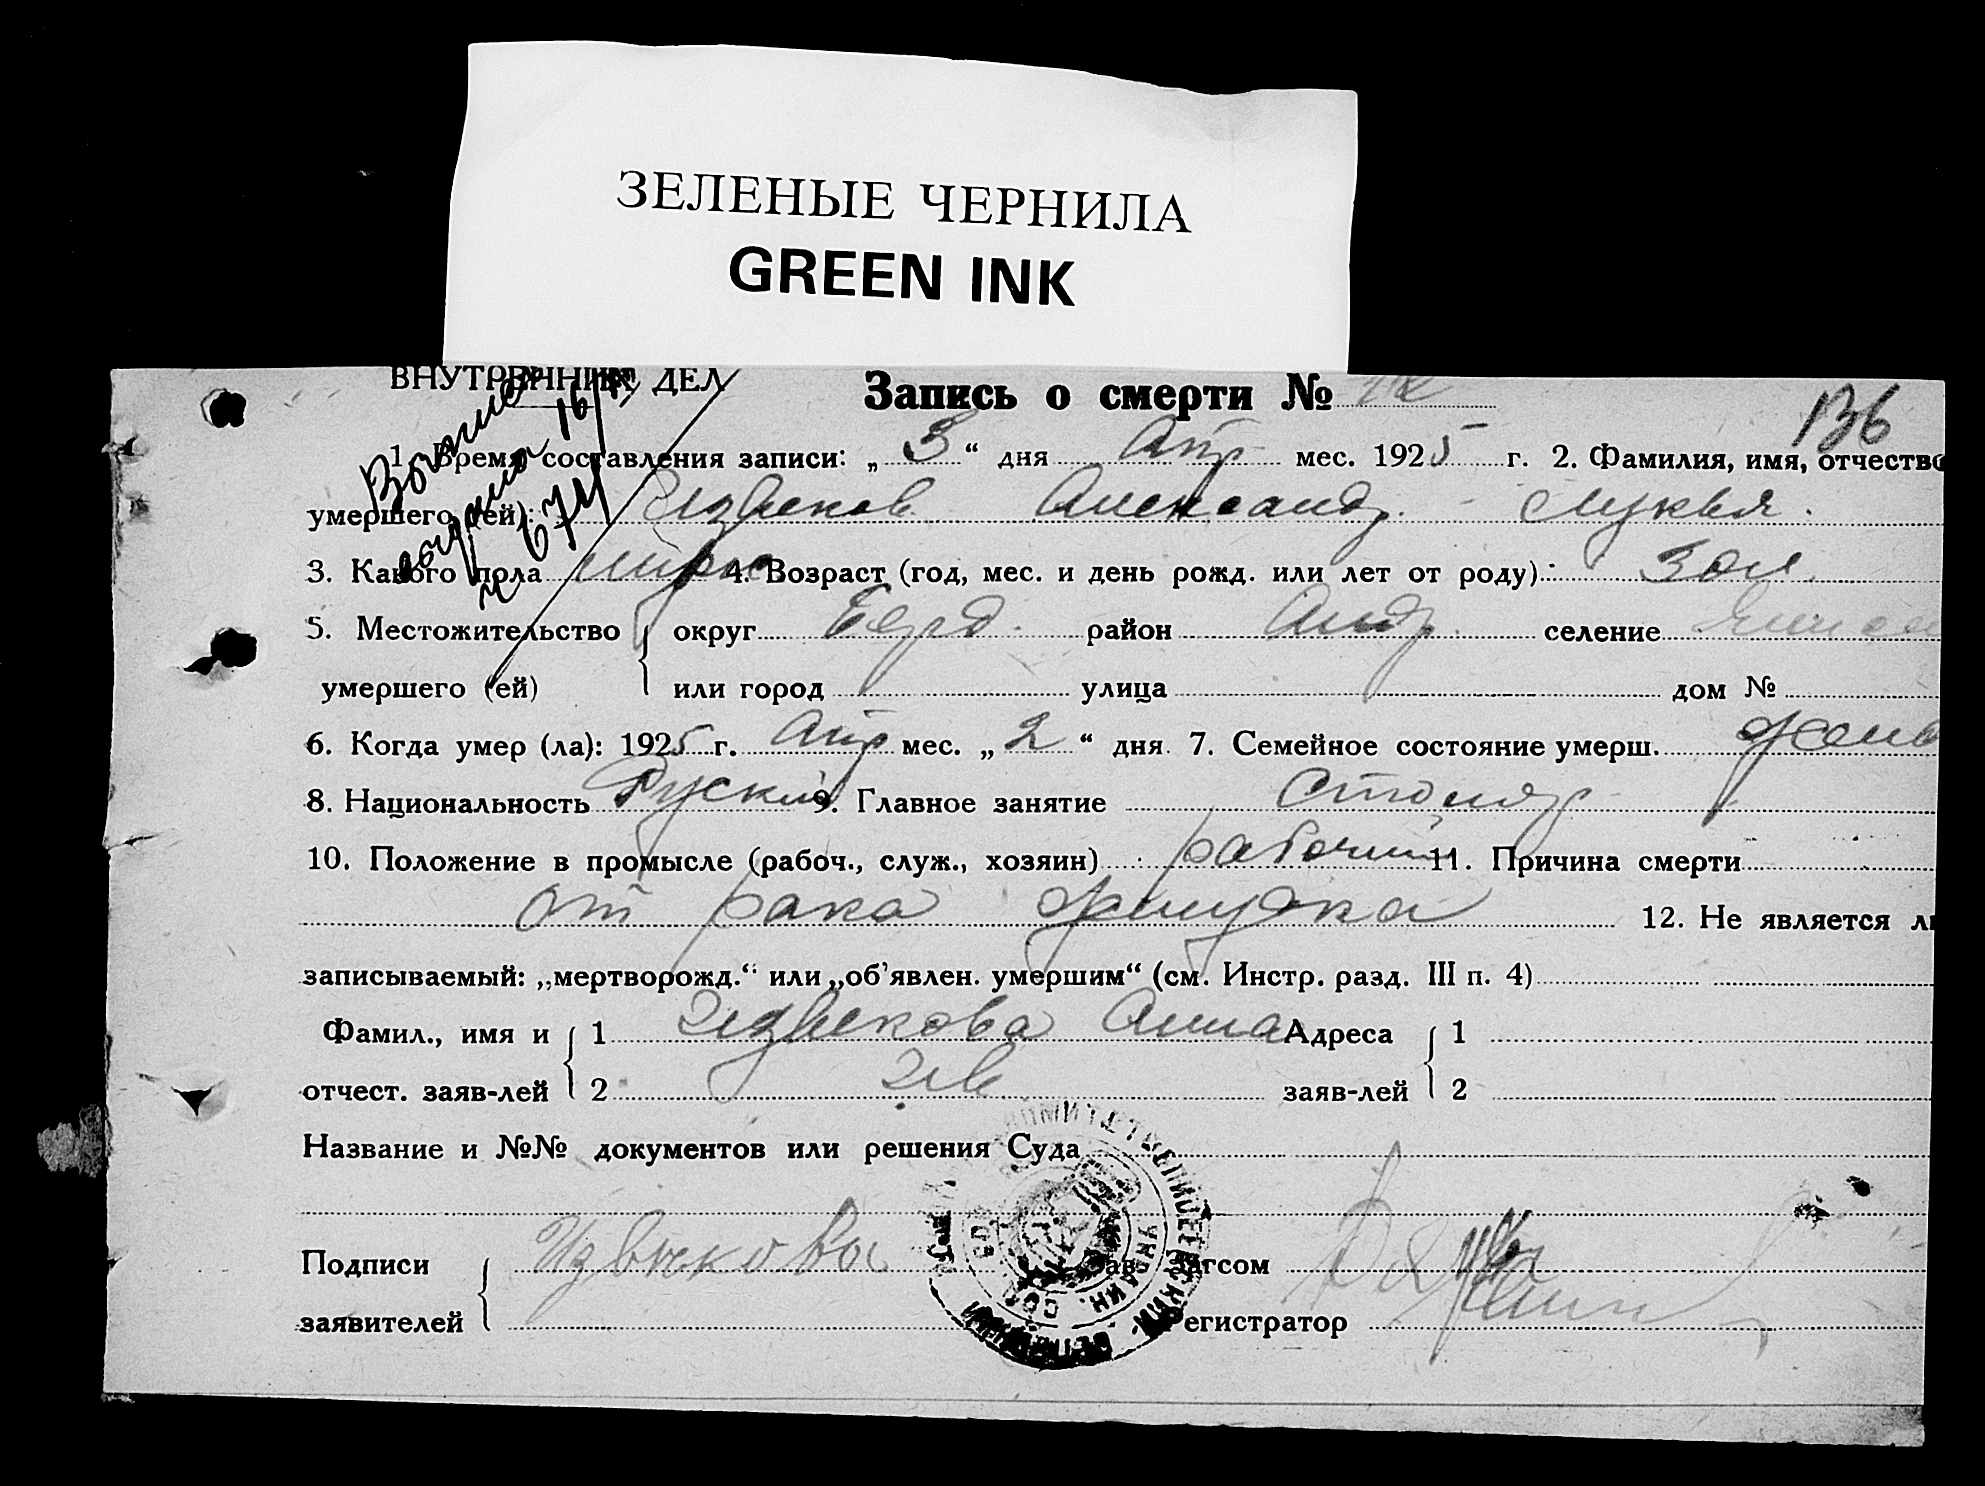 ЗЕЛЕНЫЕ ЧЕРНИЛА
GREEN INK
ВНУТРЕННИХ ДЕЛ
Запись о смерти №
136
1. Время составления записи: „3“ дня Апр мес. 1925 г. 2. Фамилия, имя, отчество
умершего (ей): Извеков Александр Лукья
3. Какого пола 4. Возраст (год, мес. и день рожд. или лет от роду):
5. Местожительство округ Берд. район Андр селение
умершего (ей) или город улица дом №
6. Когда умер (ла): 1925 г. Апр мес. „2“ дня. 7. Семейное состояние умерш. жена
8. Национальность Руский 9. Главное занятие столяр
10. Положение в промысле (рабоч., служ., хозяин) рабочий 11. Причина смерти
от рака желудка 12. Не является ли
записываемый: „мертворожд.“ или „об'явлен. умершим“ (см. Инстр. разд. III п. 4)
Фамил., имя и 1 Извекова Анна Адреса 1
отчест. заяв-лей 2 заяв-лей 2
Название и №№ документов или решения Суда
Подписи Извекова Зав. Загсом
заявителей Регистратор